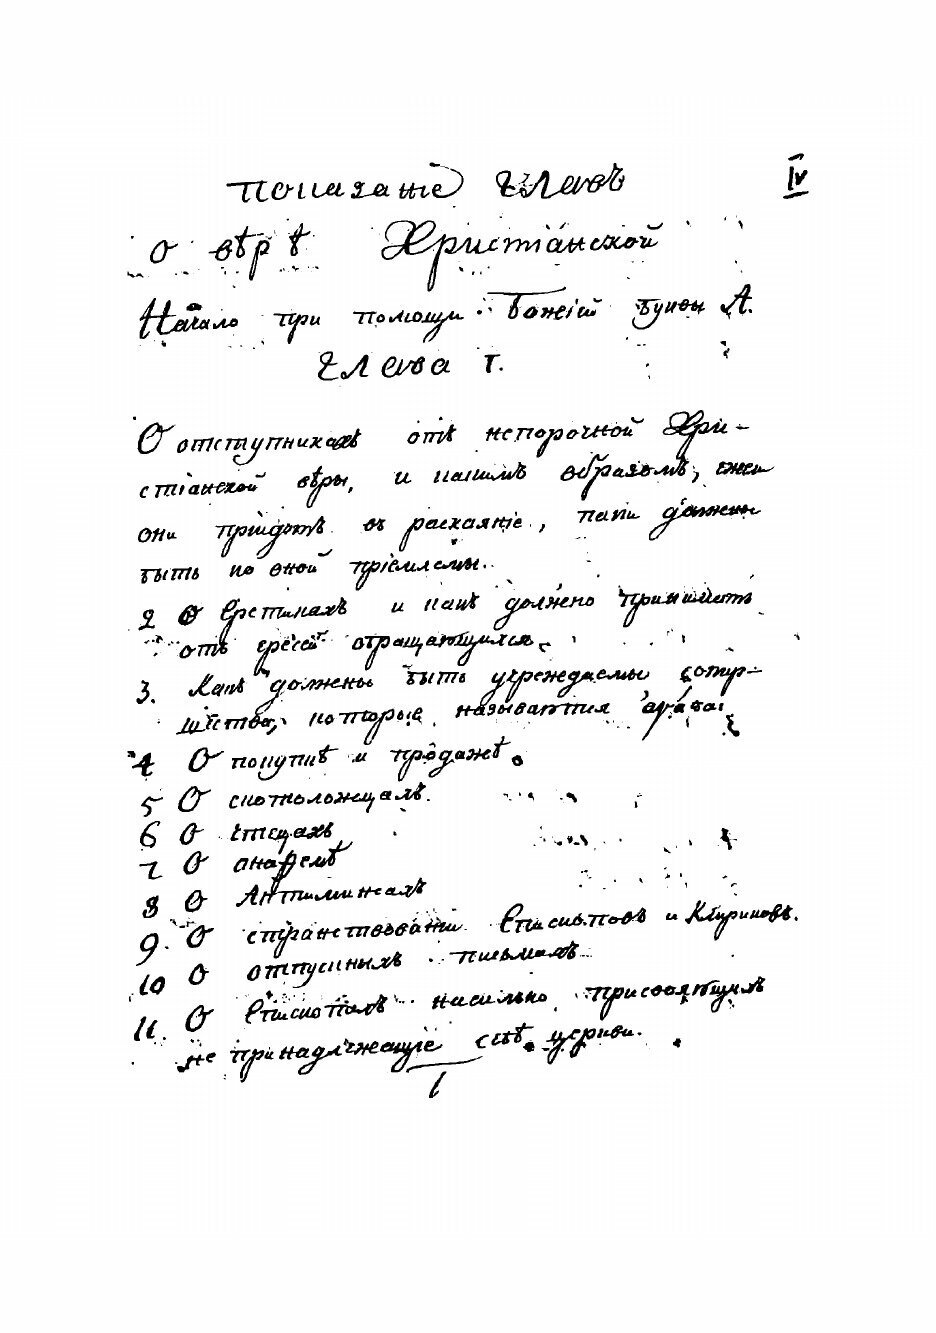 Показаніе Главъ
IV
о вѣрѣ Христіанской
Начало при помощи Божіей Буквы А.
Глава 1.
О отступникахъ отъ непорочной Хри-
стіанской вѣры, и какимъ образомъ, ежели
они прійдутъ въ раскаяніе, паки должны
быть по оной пріемлемы.
2 О Еретикахъ и какъ должно принимать
отъ ересей обращающихся.
3. Какъ должны быть учреждаемы
которые называются
4 О покупкѣ и продажѣ.
5 О скотоложцахъ.
6 О Ктецахъ
7 О анафемѣ
8 О Антиминсахъ
9. О странствованіи Епископовъ и Клириковъ.
10 О отпускныхъ письмахъ
11. О Епископахъ насильно присвояющихъ
не принадлежащіе себѣ церкви.
1